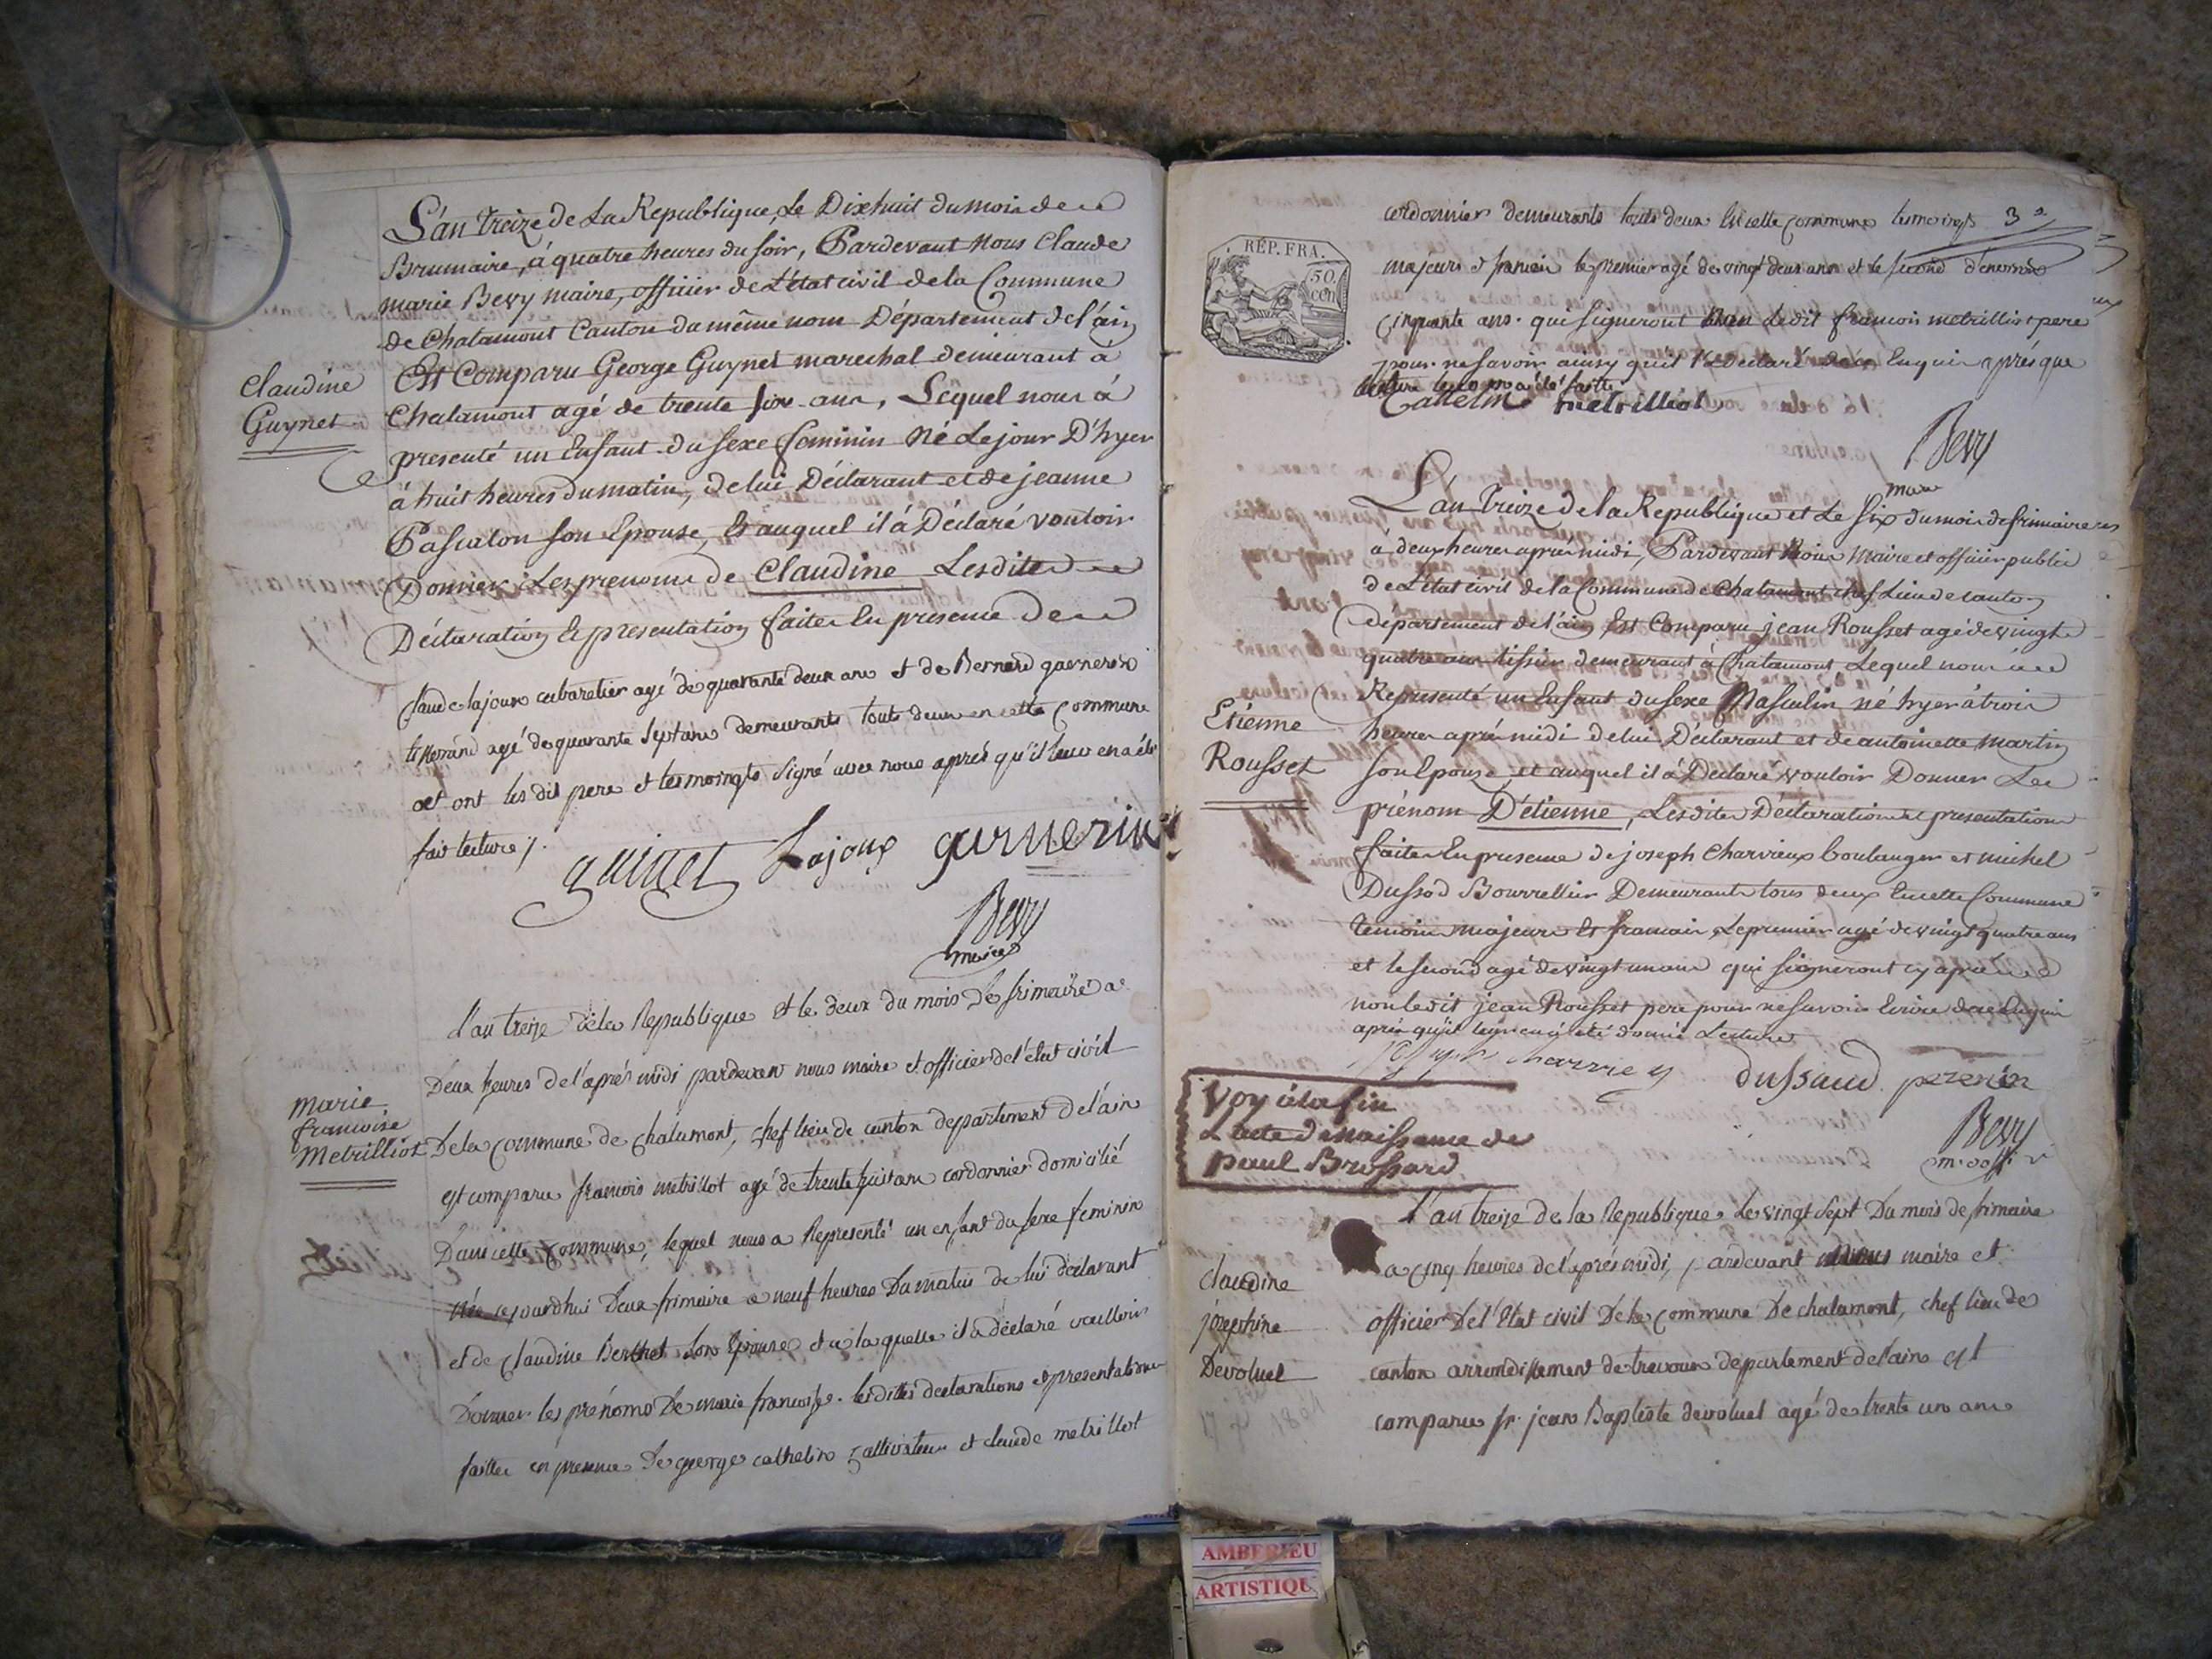 L'an treize de La Republique, Le Dixhuit du mois de
Brumaire, à quatre heures du soir, Pardevant Nous Claude
marie Bevy maire, officier de L'état civil de la Commune
de Chalamont Canton du même nom Département de l'ain
Est Comparu George Guynet marechal demeurant à
Chalamont agé de trente six ans, Lequel nous à
presenté un Enfant du sexe feminin Né Le jour D'hyer
à huit heures du matin, de lui Déclarant et de jeanne
Pascalon son Epouse, Et auquel il à Déclaré vouloir
Donner Les prenoms de Claudine Lesdites
Déclaration Et presentation faites En presence De
Claude lajoux cabaretier agé de quarante deux ans et de Bernard garnerin
tisserand agé de quarante sept ans demeurants touts deux en cette Commune
et ont les dit pere et temoingts signé avec nous après qu'il leur en a été
fait lecture /.
Claudine
Guynet
guinet Lajoux garnerin
Bevy
maire
l'an treize de la Republique et le deux du mois de frimaire a
Deux heures de l'après midi pardevant nous maire et officier de l'état civil
De la Commune de Chalamont, chef lieu de canton departement de l'ain
est comparu francois metrillot agé de trente huit ans cordonnier domicilié
Dans cette Commune, lequel nous a Representé un enfant du sexe feminin
née cejourdhui deux frimaire a neuf heures Du matin de lui declarant
et de Claudine Berthet son Epouse et a la quelle il a déclaré voulloir
Donner les prénoms De marie francoise. lesdittes declarations et presentations
faittes en presence De george cathelin cultivateur et claude metrillot
marie
francoise
Metrilliot
RÉP. FRA.
50
cen
cordonnier demeurants touts deux En cette Commune temoings 3
majeurs et francois le premier agé de vingt deux ans et le second d'environ
Cinquante ans. qui signeront non Ledit francois metrilliot pere
pour ne savoir ainsy qu'il l'a declaré de ce Enquis après que
lecture leur en a été faitte
Cattelin metrilliot
Bevy
maire
L'an treize de la Republique et Le six du mois de frimaire
à deux heures après midi, Pardevant Nous Maire et officier public
de L'état civil de la Commune de Chalamont chef Lieu de canton
département de l'ain Est Comparu jean Rousset agé de vingt
quatre ans tissier demeurant à Chalamont Lequel nous à
Representé un Enfant du sexe Masculin né hyer à trois
heures après midi de lui Déclarant et de antoinette Martin
son Epouze et auquel il à Déclaré vouloir Donner Le
prénom D'étienne, Lesdites Déclaration et presentation
faites En presence de joseph Charvieux boulanger et michel
Dussod Bourrellier Demeurants tous deux En cette Commune
temoins majeurs Et francais, Le premier agé de vingt quatre ans
et le second agé de vingt un ans qui signeront cy après
non ledit jean Rousset pere pour ne savoir Ecrire de ce Enquis
après qu'il leur en a été donné Lecture
Etienne
Rousset
Charvieu dussaud
Bevy
Voy à la fin
L'acte de Naissance de
paul Brossard
l'an treize de la Republique Le vingt sept Du mois de frimaire
a cinq heures de l'après midi, pardevant nous maire et
officier De l'Etat civil De la Commune De chalamont, chef lieu de
canton arrondissement de trevoux departement de l'ain est
comparu sr. jean Baptiste devoluet agé de trente un ans
claudine
josephine
Devoluet
AMBERIEU
ARTISTIQU